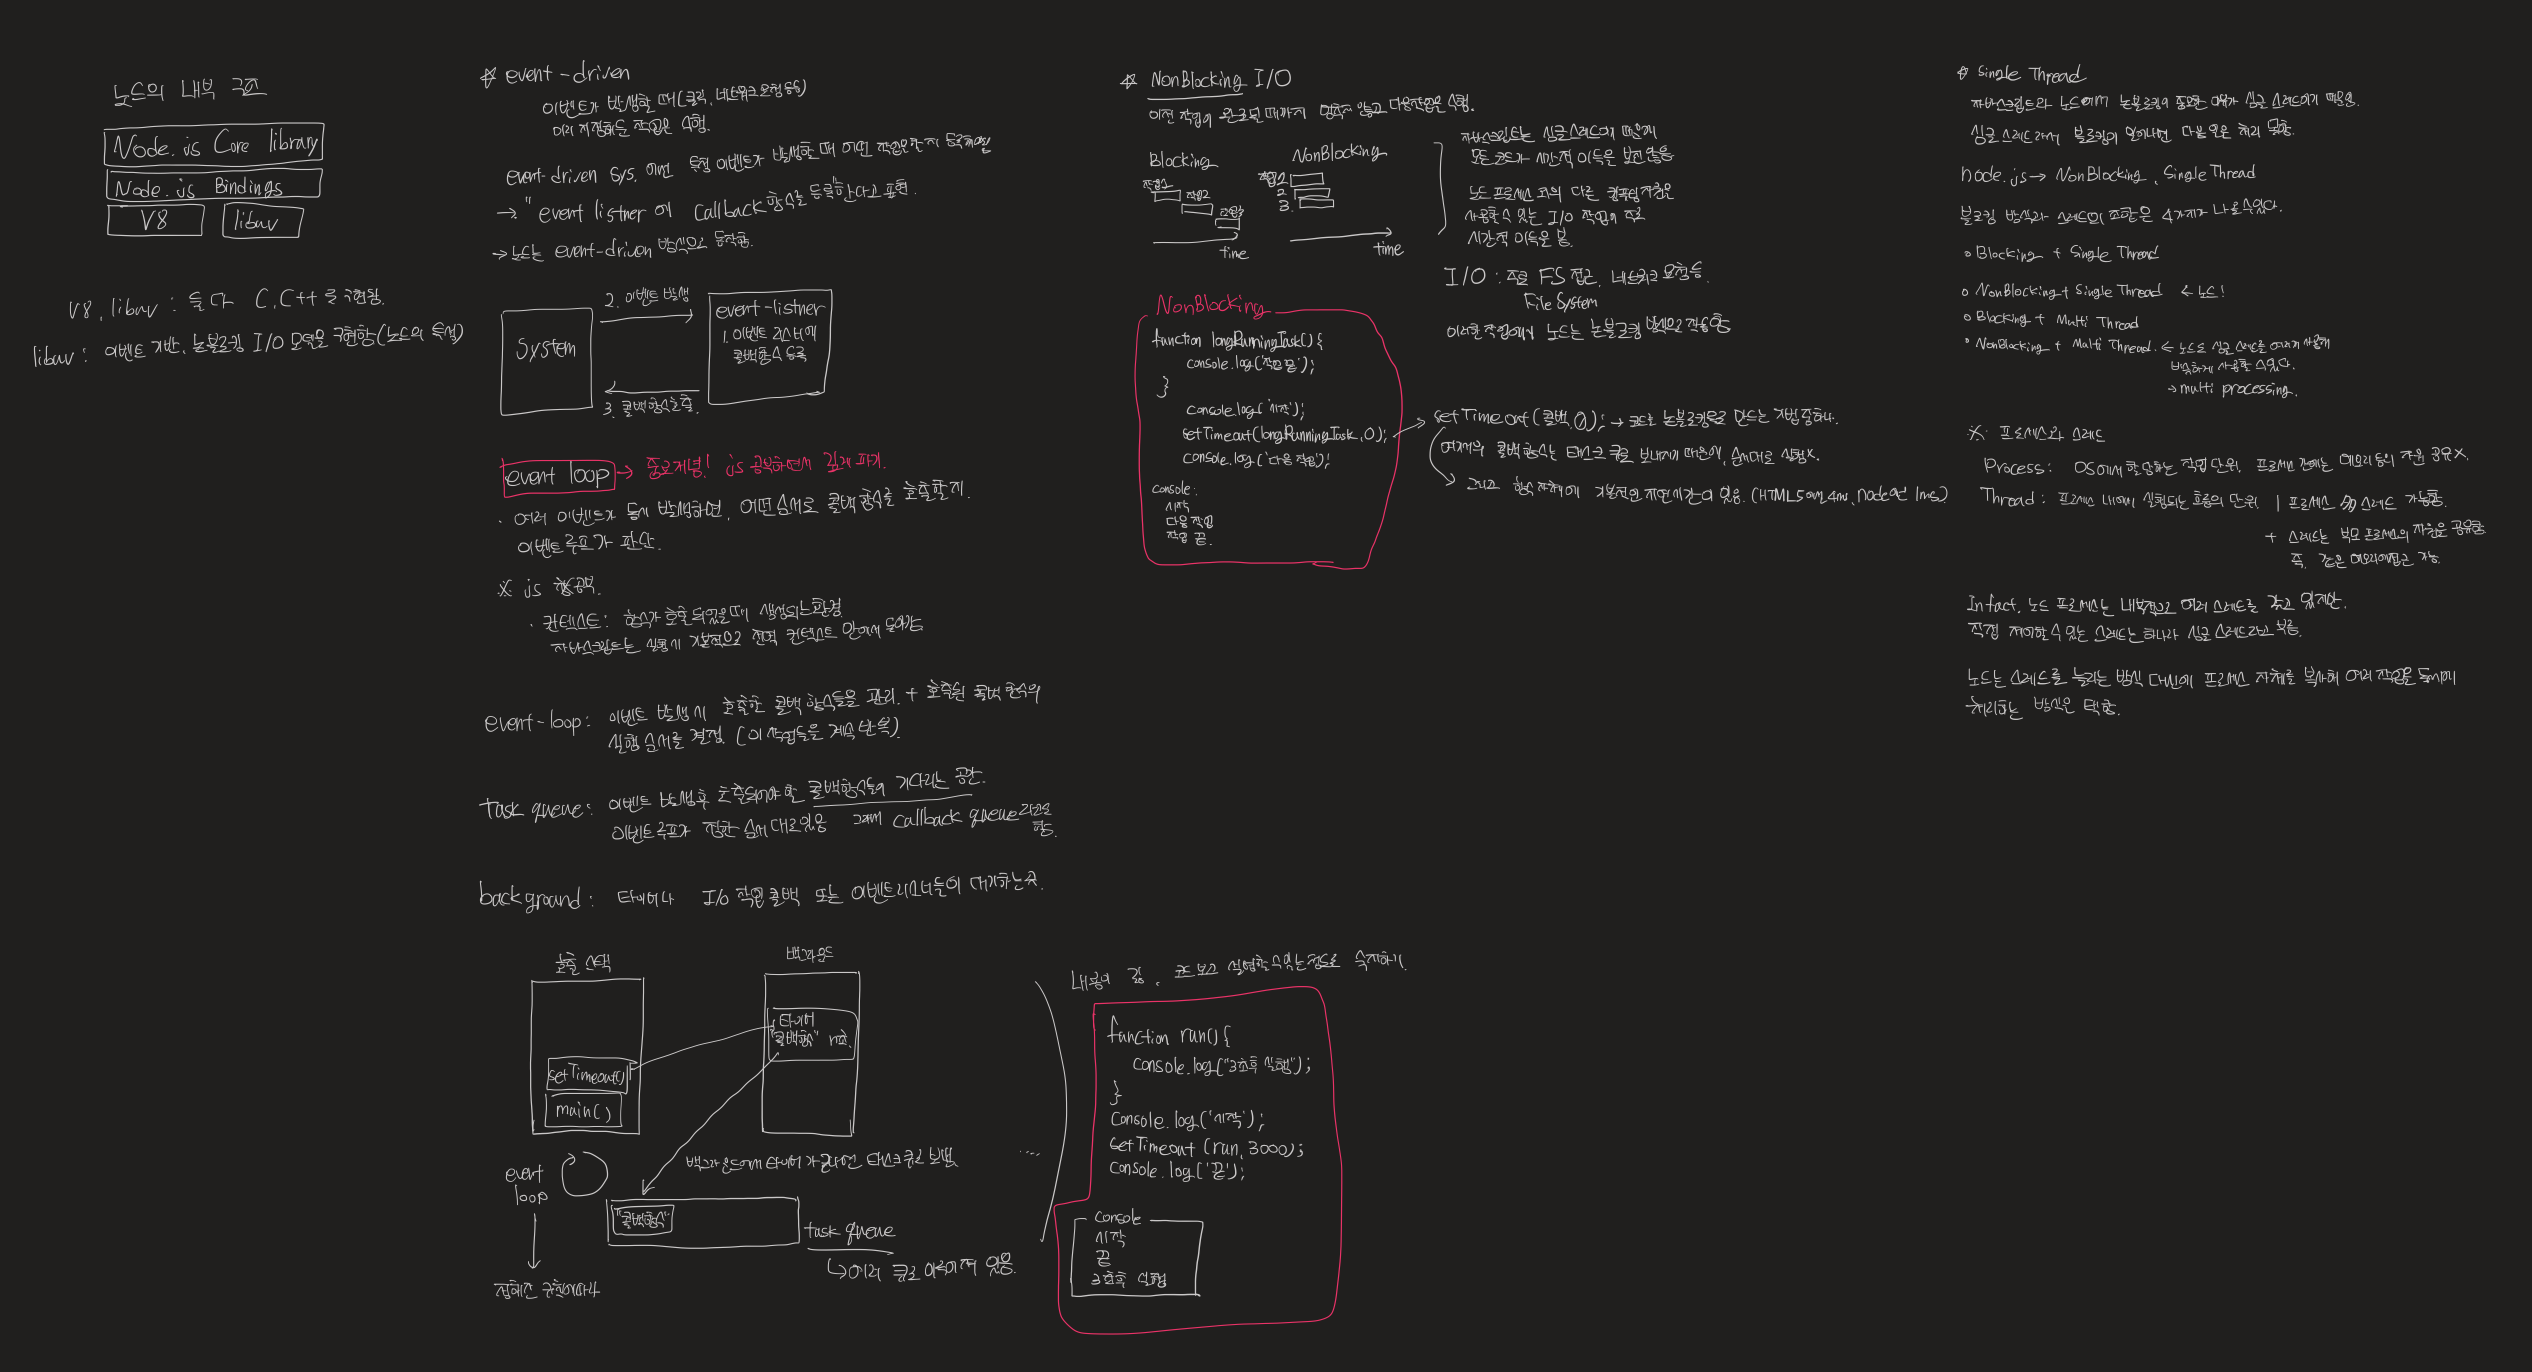 노드의 내부 구조
Node.js Core library
Node.js Bindings
V8
libuv
V8, libuv : 둘 다 C, C++로 구현됨.
libuv : 이벤트 기반, 논블로킹 I/O 모델을 구현함(노드의 특성)
☆ event-driven
이벤트가 발생할 때(클릭, 네트워크 요청 등등)
미리 지정해둔 작업을 수행.
event-driven Sys. 이면 특정 이벤트가 발생할 때 어떤 작업을 할지 등록해야됨
→ "event listner에 Callback함수를 등록"한다고 표현.
→ 노드는 event-driven 방식으로 동작함.
System
2. 이벤트 발생
3. 콜백함수 호출.
event-listner
1. 이벤트 리스너에
콜백함수 등록
event loop → 중요개념! js 공부하면서 깊게 파기.
· 여러 이벤트가 동시 발생하면, 어떤 순서로 콜백 함수를 호출할지
이벤트 루프가 판단.
※ js
· 컨텍스트 : 함수가 호출되었을 때 생성되는 환경
자바스크립트는 실행시 기본적으로 전역 컨텍스트 안에서 돌아감
event-loop : 이벤트 발생 시 호출할 콜백 함수들을 관리. + 호출된 콜백 함수의
실행 순서를 결정. (이 작업들을 계속 반복).
task queue : 이벤트 발생 후 호출되어야 할 콜백함수들이 기다리는 공간.
이벤트 루프가 정한 순서대로 있음 그래서 callback queue라고도
함.
background : 타이머나 I/O 작업 콜백 또는 이벤트리스너들이 대기하는 곳.
호출 스택
백그라운드
setTimeout()
main()
타이머
"콜백함수" n초.
백그라운드에서 타이머가 끝나면 태스크 큐로 보냄.
....
event
loop
"콜백함수"
task queue
↳ 여러 큐로 이루어져 있음.
내용이 김. 코드 보고 설명할 수 있는 정도로 숙지하기.
function run() {
Console.log("3초후 실행");
}
Console.log('시작');
setTimeout (run, 3000);
Console.log('끝');
Console
시작
끝
3초후 실행
☆ NonBlocking I/O
이전 작업이 완료될 때까지 멈추지 않고 다음작업을 수행.
Blocking
작업1
작업2
작업3
time
NonBlocking
작업1
2.
3.
time
자바스크립트는 싱글스레드이기 때문에
모든 코드가 시간적 이득을 보진 않음
노드 프로세스 외의 다른 컴퓨팅자원을
사용할 수 있는 I/O 작업이 주로
시간적 이득을 봄.
I/O : 주로 FS 접근, 네트워크 요청 등.
File System
이러한 작업에서 노드는 논블로킹 방식으로 작동함
NonBlocking
function longRunningTask() {
console.log('작업 끝');
}
console.log('시작');
setTimeout(longRunningTask, 0);
console.log('다음 작업');
console :
시작
다음 작업
작업 끝.
→ setTimeout(콜백, 0); → 코드를 논블로킹으로 만드는 기법 중 하나.
여기의 콜백함수는 태스크 큐로 보내지기 때문에, 순서대로 실행x.
그리고 함수 자체에 기본적인 지연시간이 있음. (HTML5에선 4ms, node에선 1ms)
☆ Single Thread
자바스크립트와 노드에서 논블로킹이 중요한 이유가 싱글 스레드이기 때문임.
싱글 스레드라서 블로킹이 일어나면 다음 일을 처리 못함.
node.js → NonBlocking, Single Thread
블로킹 방식과 스레드의 조합은 4가지가 나올 수 있다.
○ Blocking + Single Thread
○ NonBlocking + Single Thread ← 노드!
○ Blocking + Multi Thread
○ NonBlocking + Multi Thread. ← 노드도 싱글 스레드를 여러개 사용해
비슷하게 사용할 수 있다.
→ multi processing.
※ 프로세스와 스레드
Process : OS에서 할당하는 작업 단위, 프로세스 간에는 메모리 등의 자원 공유 X.
Thread : 프로세스 내에서 실행되는 흐름의 단위. 1 프로세스 多 스레드 가능함.
+ 스레드는 부모 프로세스의 자원을 공유함
즉, 같은 메모리에 접근 가능.
In fact, 노드 프로세스는 내부적으로 여러 스레드를 갖고 있지만.
직접 제어할 수 있는 스레드는 하나라 싱글 스레드라고 부름.
노드는 스레드를 늘리는 방식 대신에 프로세스 자체를 복사해 여러 작업을 동시에
처리하는 방식을 택함.